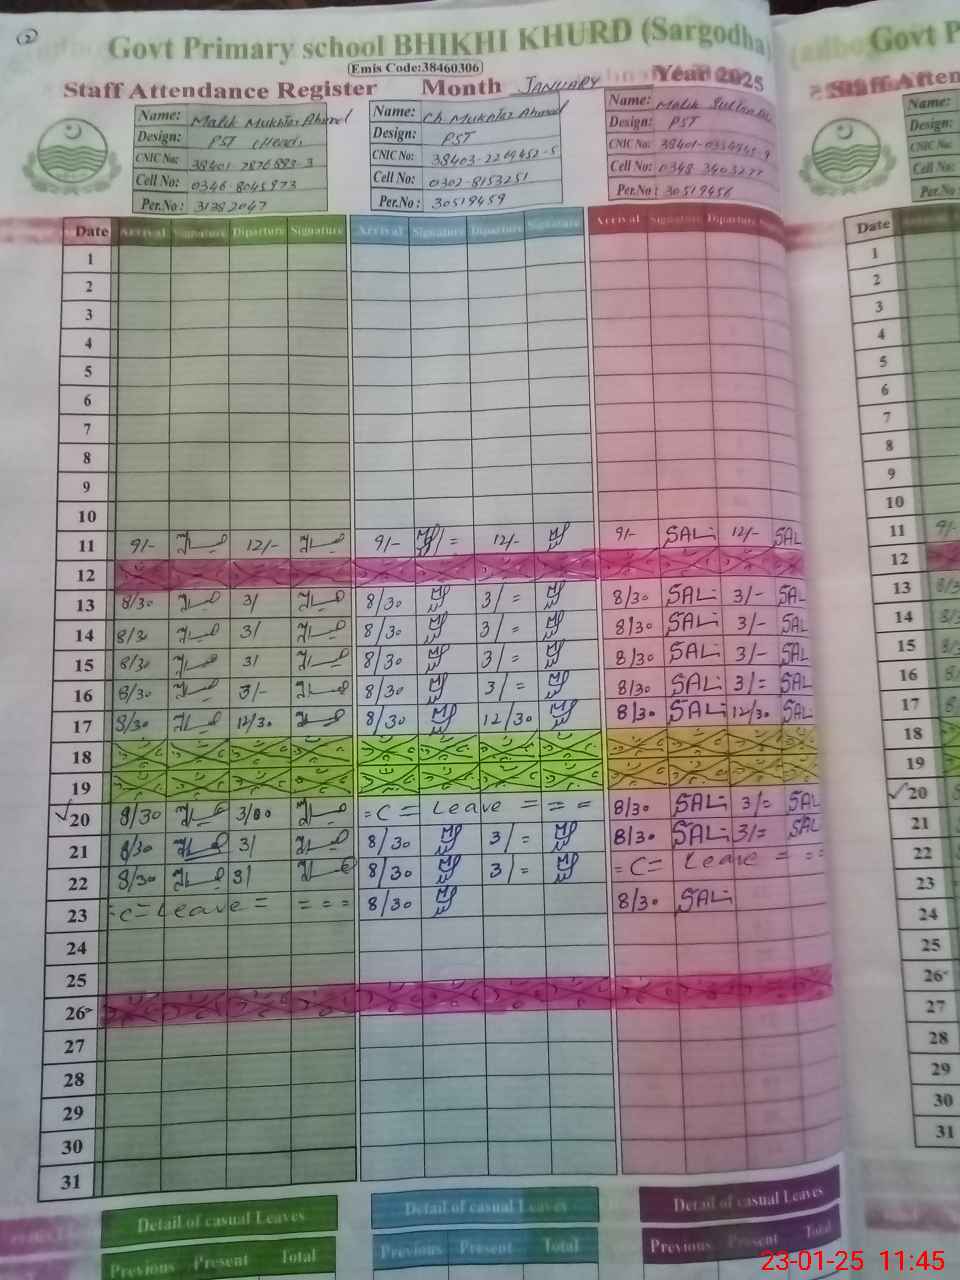 2
Govt Primary school BHIKHI KHURD (Sargodha)
Emis Code:38460306
Staff Attendance Register Month JANUARY Year 2025
Name: Malik Mukhtar Ahmed Name: Ch Mukhtar Ahmed Name: Malik Sultan
Design: PST (Head) Design: PST Design: PST
CNIC No: 38401-2876893-3 CNIC No: 38403-2269452-5 CNIC No:
Cell No: 0346-8045973 Cell No: 0302-8153251 Cell No:
Per.No: 31382047 Per.No: 30519459 Per.No: 30519456
Date Arrival Signature Diparture Signature Arrival Signature Diparture Signature Arrival Signature Diparture
1
2
3
4
5
6
7
8
9
10
11 9/- 12/- 9/- = 12/- 9/- SAL 12/- SAL
12
13 8/30 3/ 8/30 3/= 8/30 SAL 3/- SAL
14 8/30 3/ 8/30 3/= 8/30 SAL 3/- SAL
15 8/30 3/ 8/30 3/= 8/30 SAL 3/- SAL
16 8/30 3/- 8/30 3/= 8/30 SAL 3/= SAL
17 8/30 12/30 8/30 12/30 8/30 SAL 12/30 SAL
18
19
20 8/30 3/00 =C= Leave = = = 8/30 SAL 3/= SAL
21 8/30 3/ 8/30 3/= 8/30 SAL 3/= SAL
22 8/30 3/ 8/30 3/= =C= Leave = ==
23 =C= Leave = = = = 8/30 8/30 SAL
24
25
26
27
28
29
30
31
Detail of casual Leaves Detail of casual Leaves Detail of casual Leaves
Previous Present Total Previous Present Total Previous Present Total
Govt P
Staff Atten
Name:
Design:
CNIC No:
Cell No:
Per.No
Date
1
2
3
4
5
6
7
8
9
10
11 9/-
12
13
14
15
16
17
18
19
20
21
22
23
24
25
26
27
28
29
30
31
23-01-25 11:45